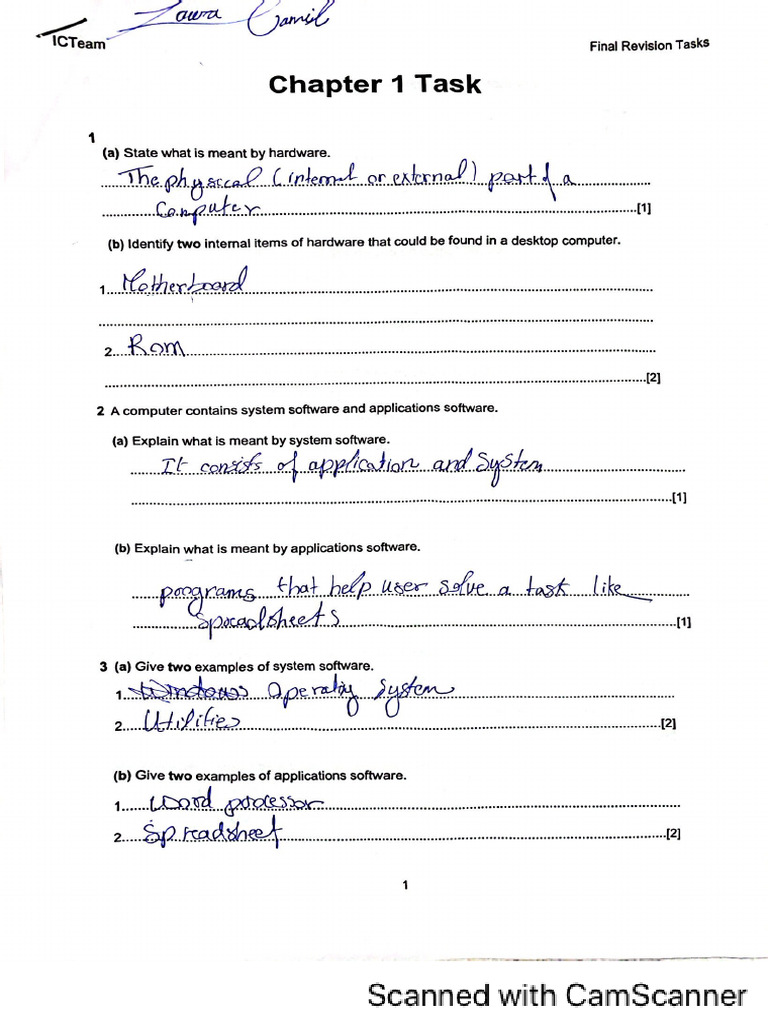 Laura Camil
ICTeam
Final Revision Tasks
Chapter 1 Task
1
(a) State what is meant by hardware.
The physical (internal or external) part of a
Computer [1]
(b) Identify two internal items of hardware that could be found in a desktop computer.
1. Motherboard
2. Rom
[2]
2 A computer contains system software and applications software.
(a) Explain what is meant by system software.
It consists of application and System
[1]
(b) Explain what is meant by applications software.
programs that help user solve a task like
Spreadsheets [1]
3 (a) Give two examples of system software.
1. Windows Operating System
2. Utilities [2]
(b) Give two examples of applications software.
1. Word processor
2. Spreadsheet [2]
1
Scanned with CamScanner